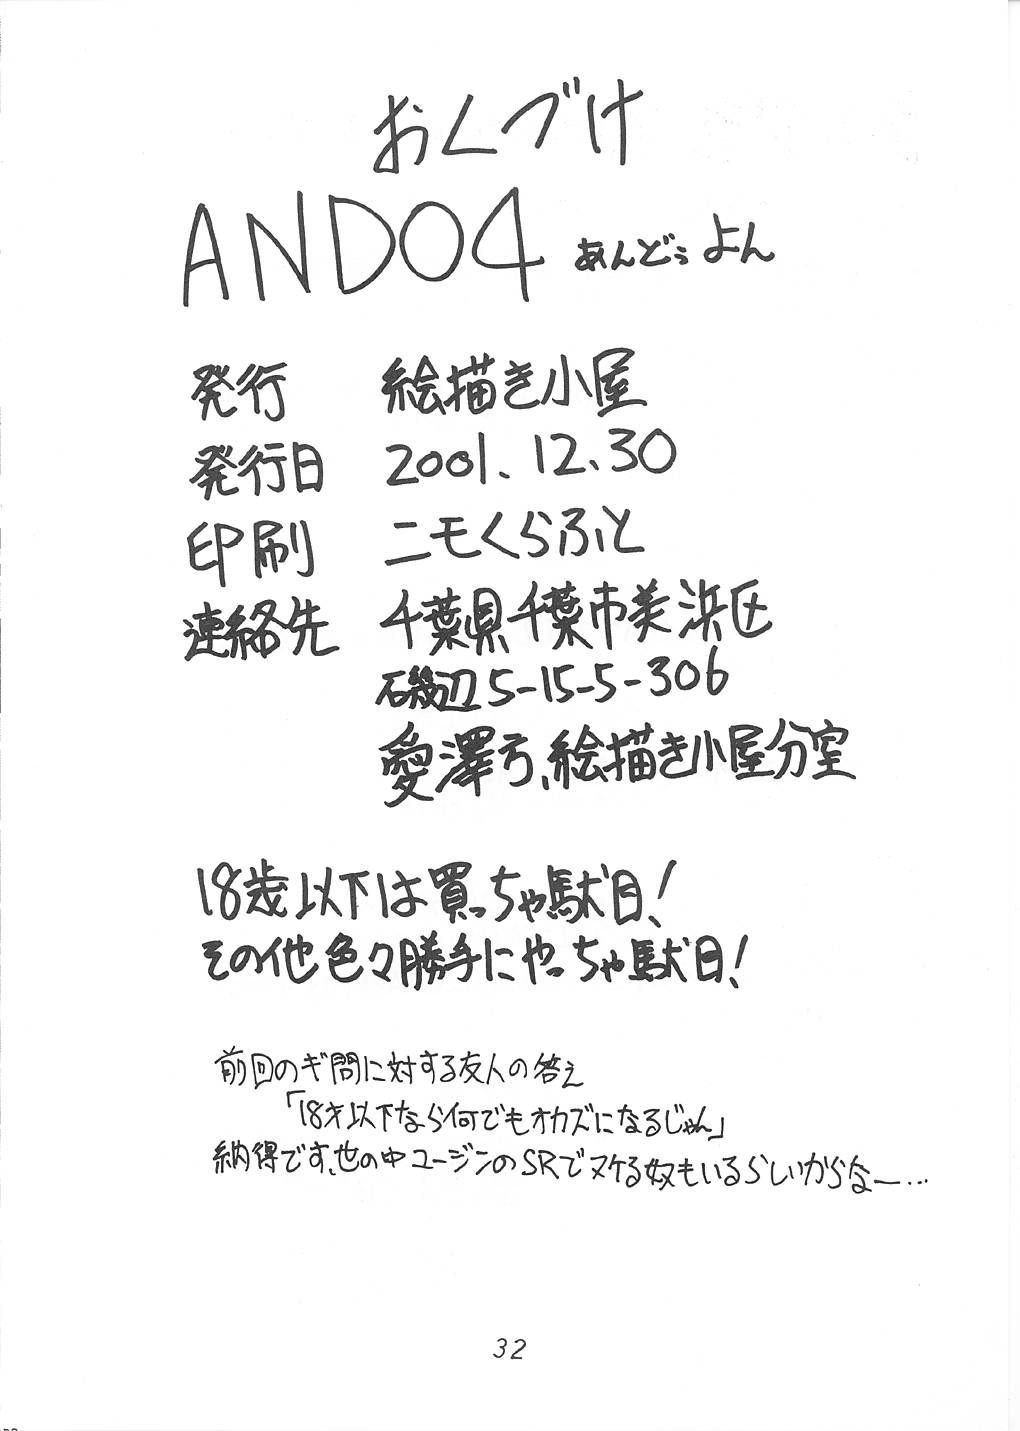 おくづけ
AND04 あんどぅ よん
発行 絵描き小屋
発行日 2001.12.30
印刷 ニモくらふと
連絡先 千葉県千葉市美浜区
磯辺5-15-5-306
愛澤弓、絵描き小屋分室
18歳以下は買っちゃ駄目!
その他色々勝手にやっちゃ駄目!
前回のギ問に対する友人の答え
「18才以下なら何でもオカズになるじゃん」
納得です、世の中ユージンのSRでヌケる奴もいるらしいからなー…
32